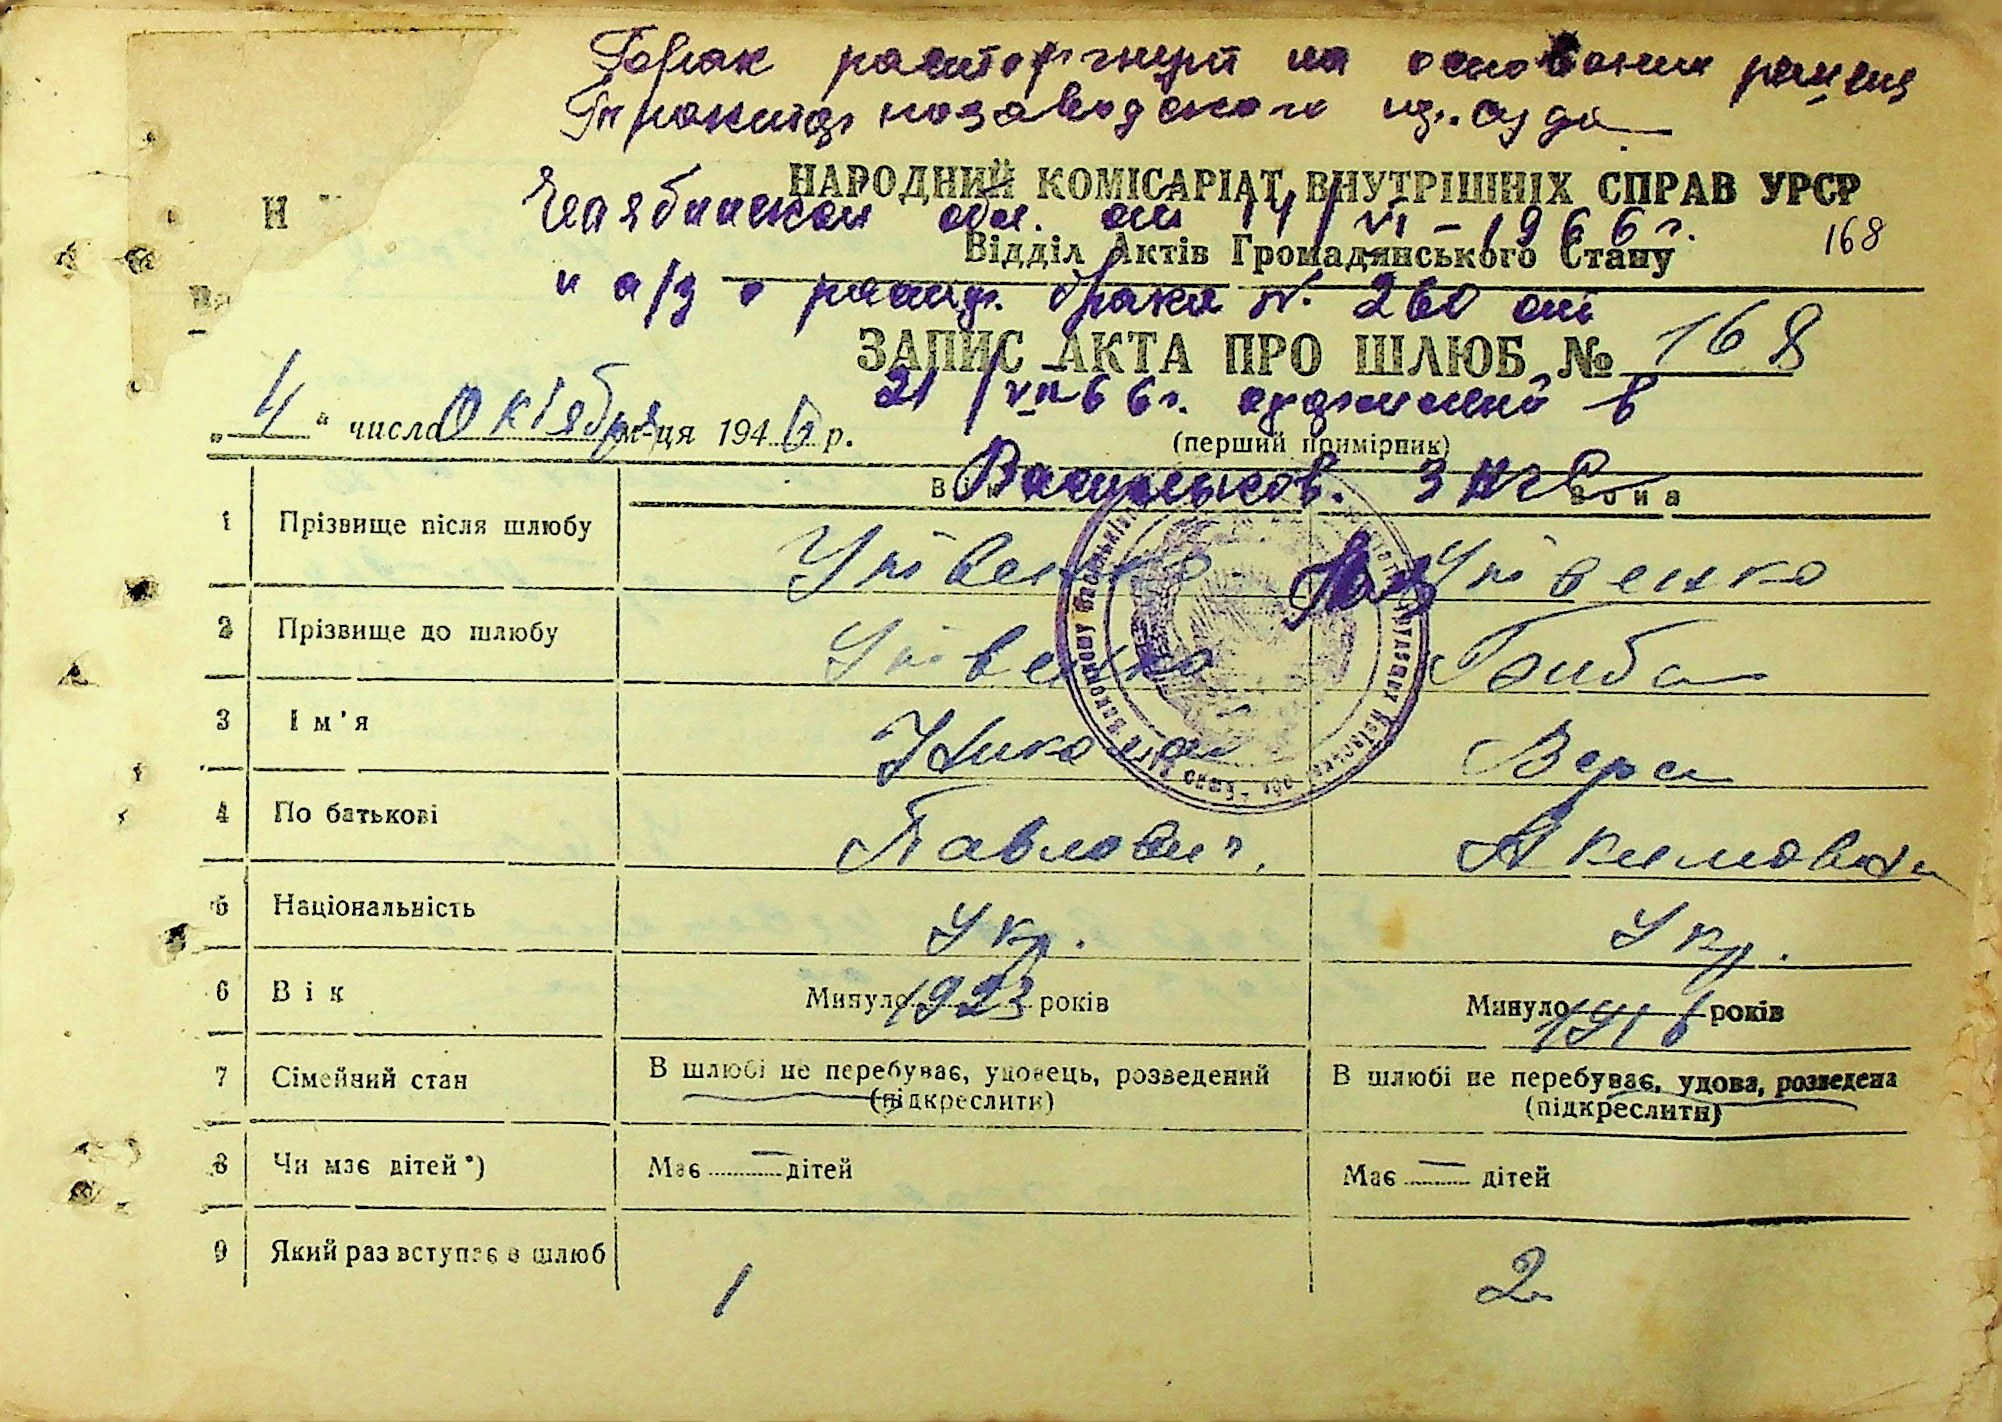 Брак расторгнут на основании решения
нар. суда
НАРОДНИЙ КОМІСАРІАТ ВНУТРІШНІХ СПРАВ УРСР
Челябинской обл. от 14/VI-1966г.
Відділ Актів Громадянського Стану
168
и а/з о расторж. брака №. 260 от
ЗАПИС АКТА ПРО ШЛЮБ № 168
21/VII-66г. в
„4“ числа Октября м-ця 1946 р.
(перший примірник)
Він Васильков. ЗАГС Вона
1 Прізвище після шлюбу Упівенко Упівенко
2 Прізвище до шлюбу Упівенко Биба
3 Ім'я Николай Вера
4 По батькові Павлович. Акимовна
5 Національність Укр. Укр.
6 Вік Минуло 1923 років Минуло 1916 років
7 Сімейний стан В шлюбі не перебуває, удовець, розведений В шлюбі не перебуває, удова, розведена
(підкреслити) (підкреслити)
8 Чи має дітей*) Має — дітей Має — дітей
9 Який раз вступає в шлюб 1 2